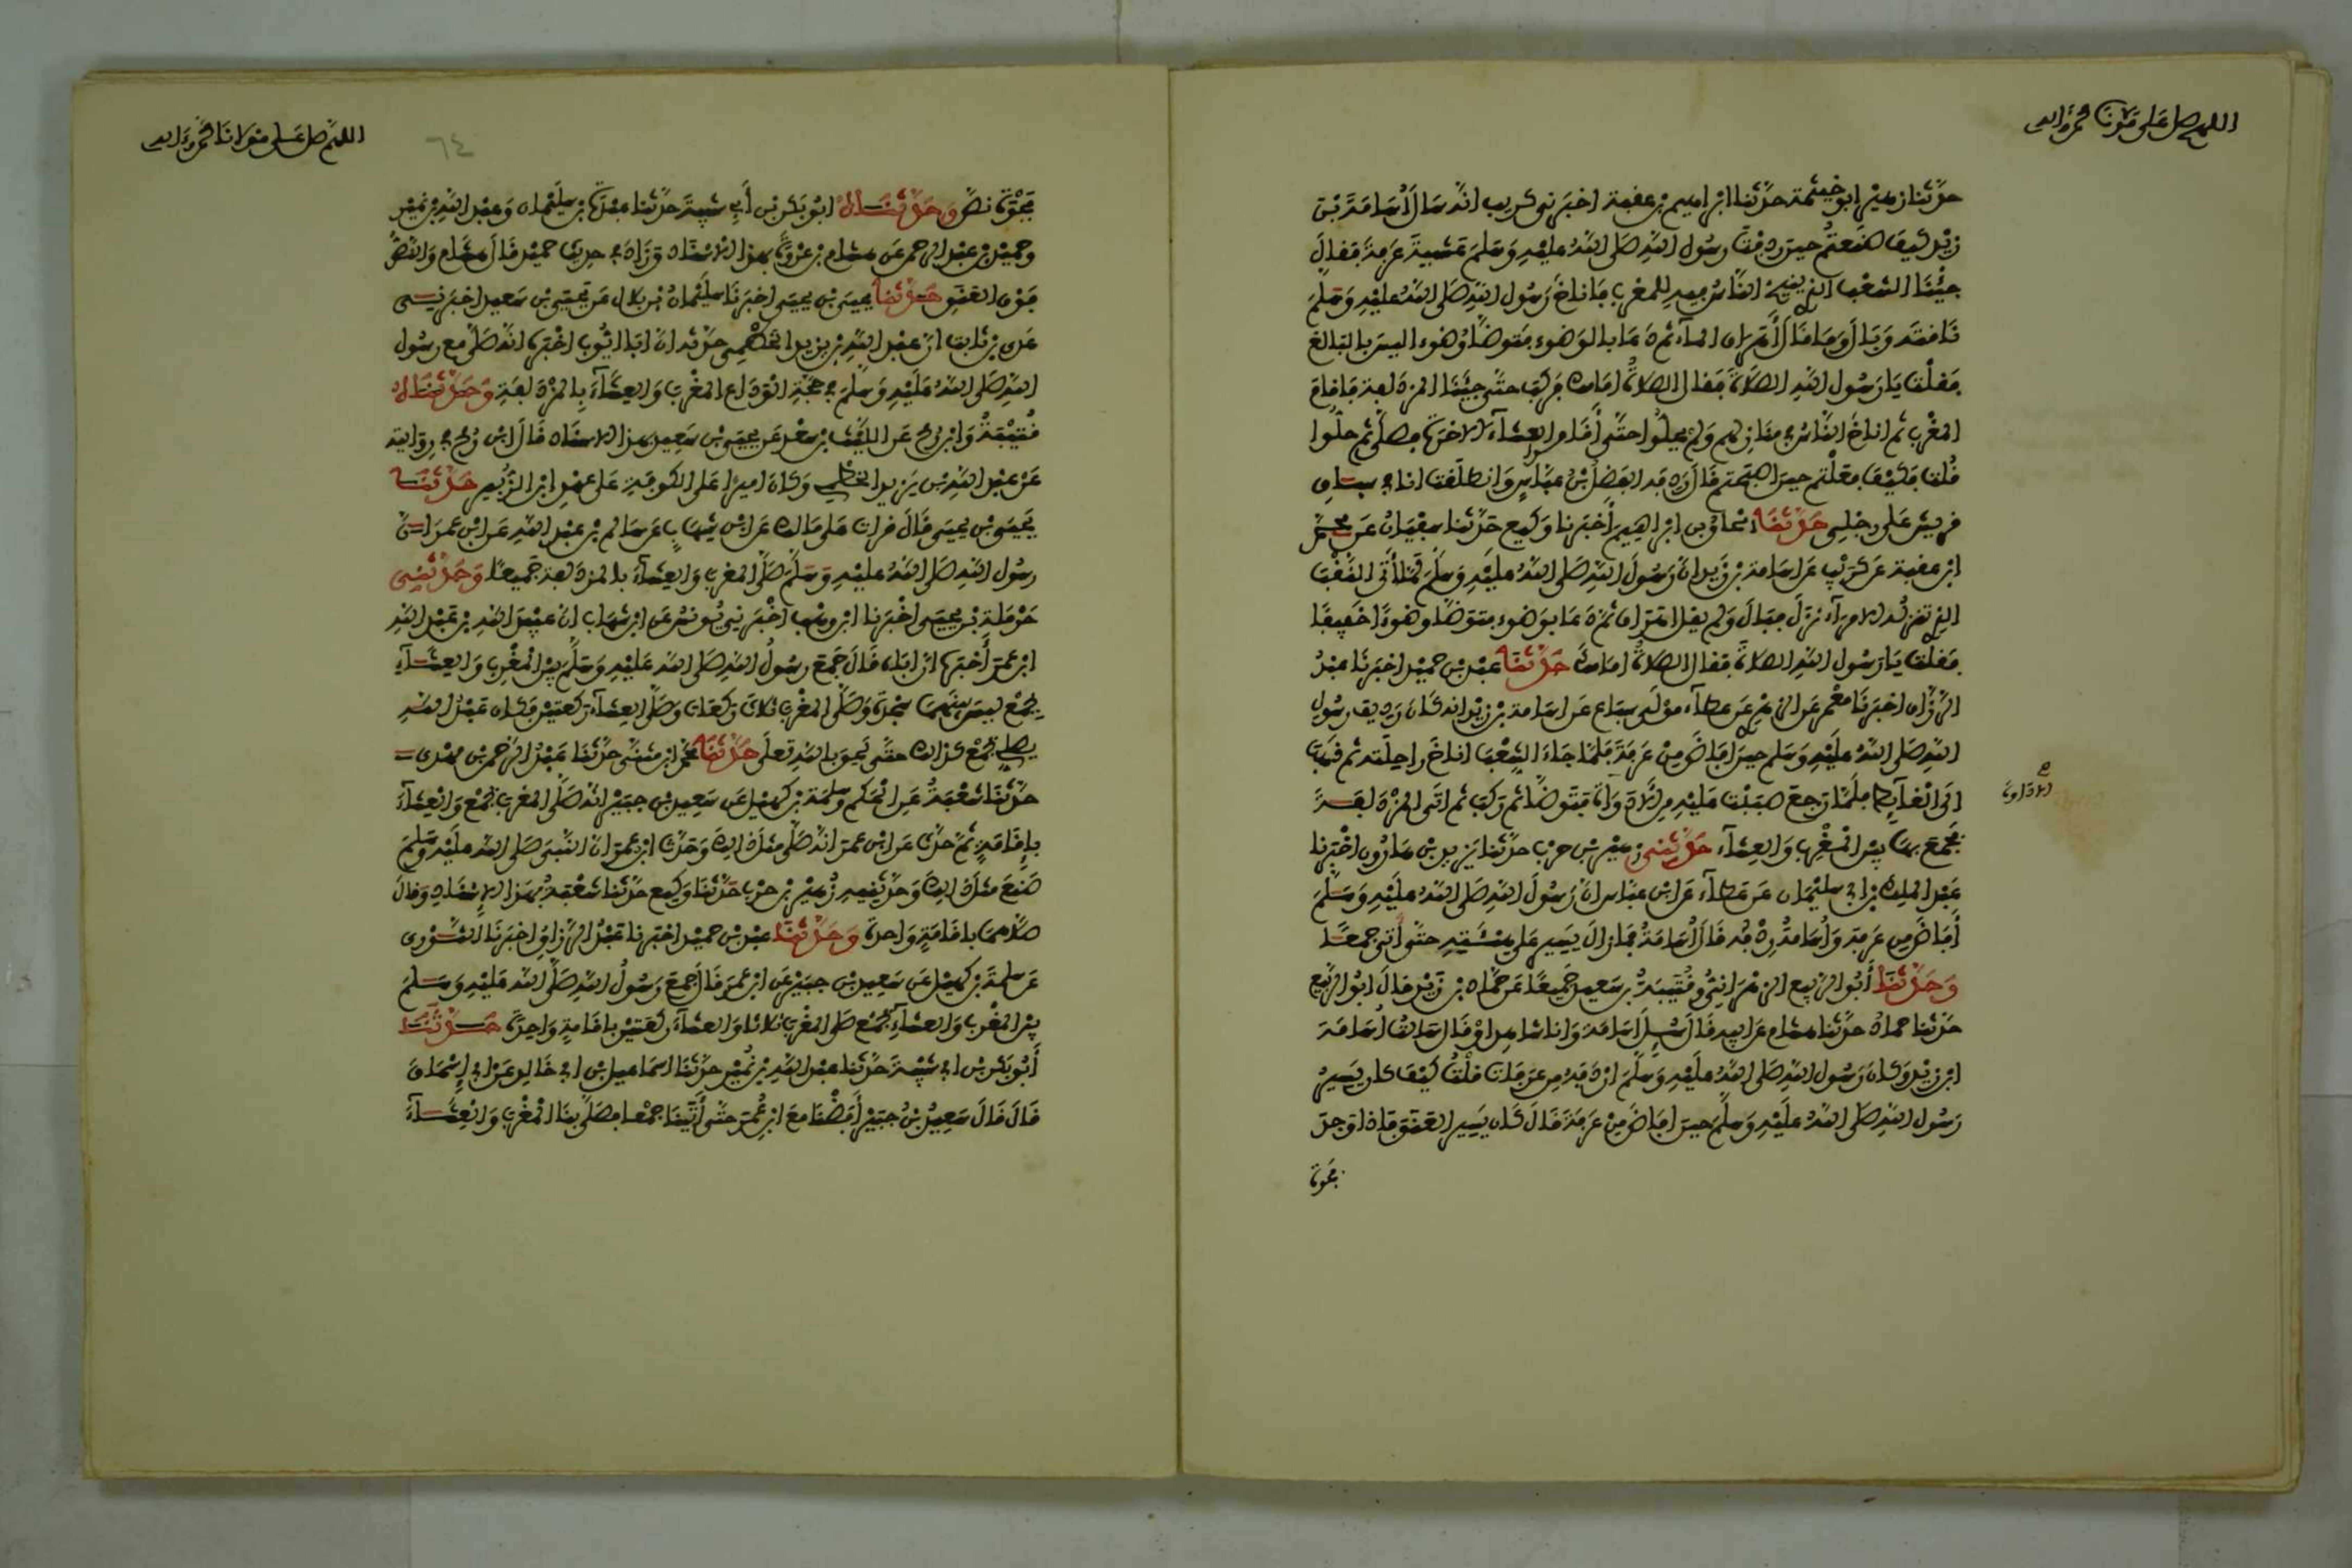 اللهم صل على مولانا محمد وآله
حدثنا زهير ابو خيثمة حدثنا ابراهيم بن عقبة اخبرني كريب انه سال أسامة بن
زيد كيف صنعتم حين ردفت رسول الله صلى الله عليه وسلم عشية عرفة فقال
جئنا الشعب الذي ينيخ الناس فيه للمغرب فاناخ رسول الله صلى الله عليه وسلم
ناقته وبال وما قال أهراق الماء ثم دعا بالوضوء فتوضأ وضوءا ليس بالبالغ
فقلت يا رسول الله الصلاة فقال الصلاة امامك فركب حتى جئنا المزدلفة فاقام
المغرب ثم اناخ الناس في منازلهم ولم يحلوا حتى أقام العشاء الاخرة فصلى ثم حلوا
قلت فكيف فعلتم حين اصبحتم قال ردفه الفضل بن عباس وانطلقت انا في سباق
قريش على رجلي حدثنا اسحاق بن ابراهيم أخبرنا وكيع حدثنا سفيان عن محمد
ابن عقبة عن كريب عن اسامة بن زيد ان رسول الله صلى الله عليه وسلم لما أتى النقب
الذي تنزله الامراء نزل فبال ولم يقل اهراق ثم دعا بوضوء فتوضأ وضوءا خفيفا
فقلت يا رسول الله الصلاة فقال الصلاة امامك حدثنا عبد بن حميد اخبرنا عبد
الرزاق اخبرنا معمر عن الزهري عن عطاء مولى سباع عن اسامة بن زيد انه كان رديف رسول
الله صلى الله عليه وسلم حين افاض من عرفة فلما جاء الشعب اناخ راحلته ثم ذهب
الى الغائط فلما رجع صببت عليه من الاداوة فتوضأ ثم ركب ثم اتى المزدلفة
الاداوة
فجمع بها بين المغرب والعشاء حدثني زهير بن حرب حدثنا يزيد بن هارون اخبرنا
عبد الملك بن ابي سليمان عن عطاء عن ابن عباس ان رسول الله صلى الله عليه وسلم
أفاض من عرفة وأسامة ردفه قال أسامة فما زال يسير على هيئته حتى أتى جمعا
وحدثنا أبو الربيع الزهراني وقتيبة بن سعيد جميعا عن حماد بن زيد قال ابو الربيع
حدثنا حماد حدثنا هشام عن ابيه قال سئل أسامة وانا شاهد او قال سالت أسامة
ابن زيد وكان رسول الله صلى الله عليه وسلم اردفه من عرفات قلت كيف كان يسير
رسول الله صلى الله عليه وسلم حين افاض من عرفة قال كان يسير العنق فاذا وجد
فجوة
اللهم صل على مولانا محمد وآله
٦٤
فجوة نص وحدثناه ابو بكر بن أبي شيبة حدثنا عبدة بن سليمان وعبد الله بن نمير
وحميد بن عبد الرحمن عن هشام بن عروة بهذا الاسناد وزاد في حديث حميد قال هشام والنص
فوق العنق حدثنا يحيى بن يحيى اخبرنا سليمان بن بلال عن يحيى بن سعيد اخبرني
عدي بن ثابت ان عبد الله بن يزيد الخطمي حدثه ان ابا ايوب اخبره انه صلى مع رسول
الله صلى الله عليه وسلم في حجة الوداع المغرب والعشاء بالمزدلفة وحدثناه
قتيبة وابن رمح عن الليث بن سعد عن يحيى بن سعيد بهذا الاسناد قال ابن رمح في روايته
عن عبد الله بن يزيد الخطمي وكان اميرا على الكوفة على عهد ابن الزبير حدثنا
يحيى بن يحيى قال قرات على مالك عن ابن شهاب عن سالم بن عبد الله عن ابن عمر ان
رسول الله صلى الله عليه وسلم صلى المغرب والعشاء بالمزدلفة جميعا وحدثني
حرملة بن يحيى اخبرنا ابن وهب اخبرني يونس عن ابن شهاب ان عبيد الله بن عبد الله
ابن عمر أخبره ان اباه قال جمع رسول الله صلى الله عليه وسلم بين المغرب والعشاء
بجمع ليس بينهما سجدة وصلى المغرب ثلاث ركعات وصلى العشاء ركعتين فكان عبد الله
يصلي بجمع كذلك حتى لحق بالله تعلى حدثنا محمد بن مثنى حدثنا عبد الرحمن بن مهدي
حدثنا شعبة عن الحكم وسلمة بن كهيل عن سعيد بن جبير انه صلى المغرب بجمع والعشاء
بإقامة ثم حدث عن ابن عمر انه صلى مثل ذلك وحدث ابن عمر ان النبي صلى الله عليه وسلم
صنع مثل ذلك وحدثنيه زهير بن حرب حدثنا وكيع حدثنا شعبة بهذا الإسناد وقال
صلاهما باقامة واحدة وحدثنا عبد بن حميد اخبرنا عبد الرزاق اخبرنا الثوري
عن سلمة بن كهيل عن سعيد بن جبير عن ابن عمر قال جمع رسول الله صلى الله عليه وسلم
بين المغرب والعشاء بجمع صلى المغرب ثلاثا والعشاء ركعتين باقامة واحدة حدثنا
أبو بكر بن ابي شيبة حدثنا عبد الله بن نمير حدثنا اسماعيل بن ابي خالد عن ابي إسحاق
قال قال سعيد بن جبير أفضنا مع ابن عمر حتى أتينا جمعا فصلى بنا المغرب والعشاء